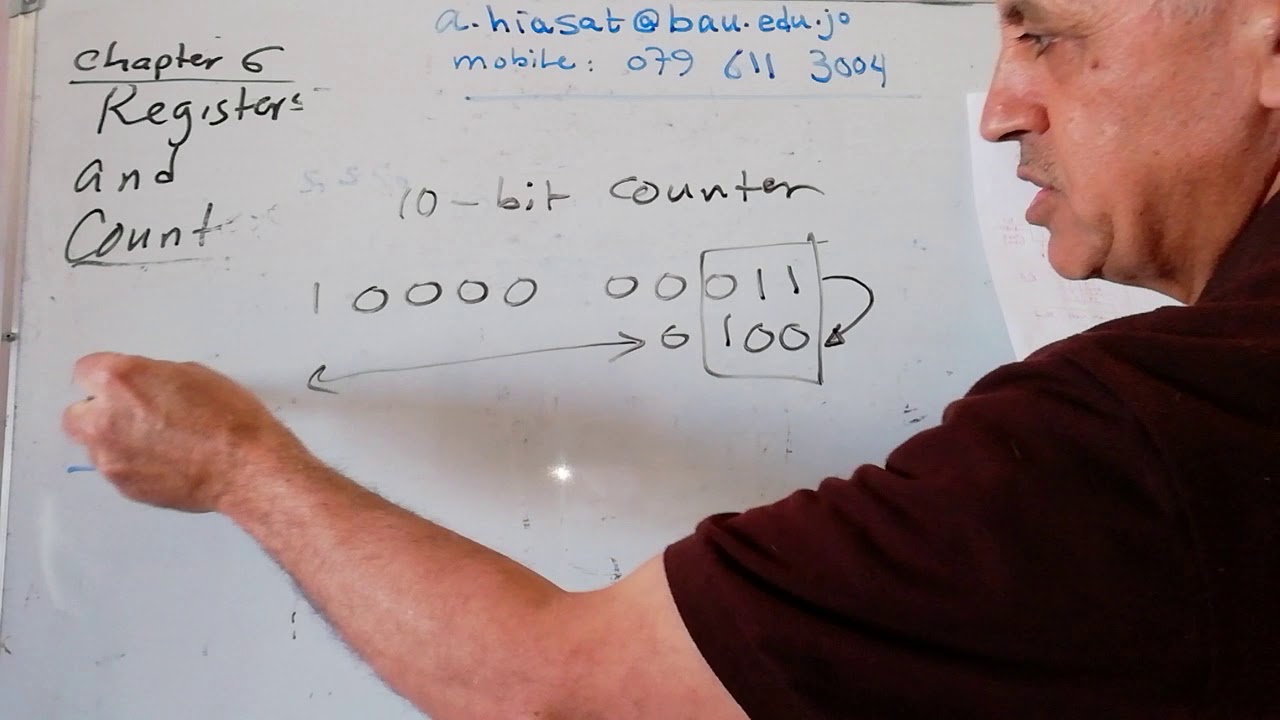 a.hiasat@bau.edu.jo
mobile: 079 611 3004
Chapter 6
Registers
and
Count
10-bit counter
10000 00011
0100